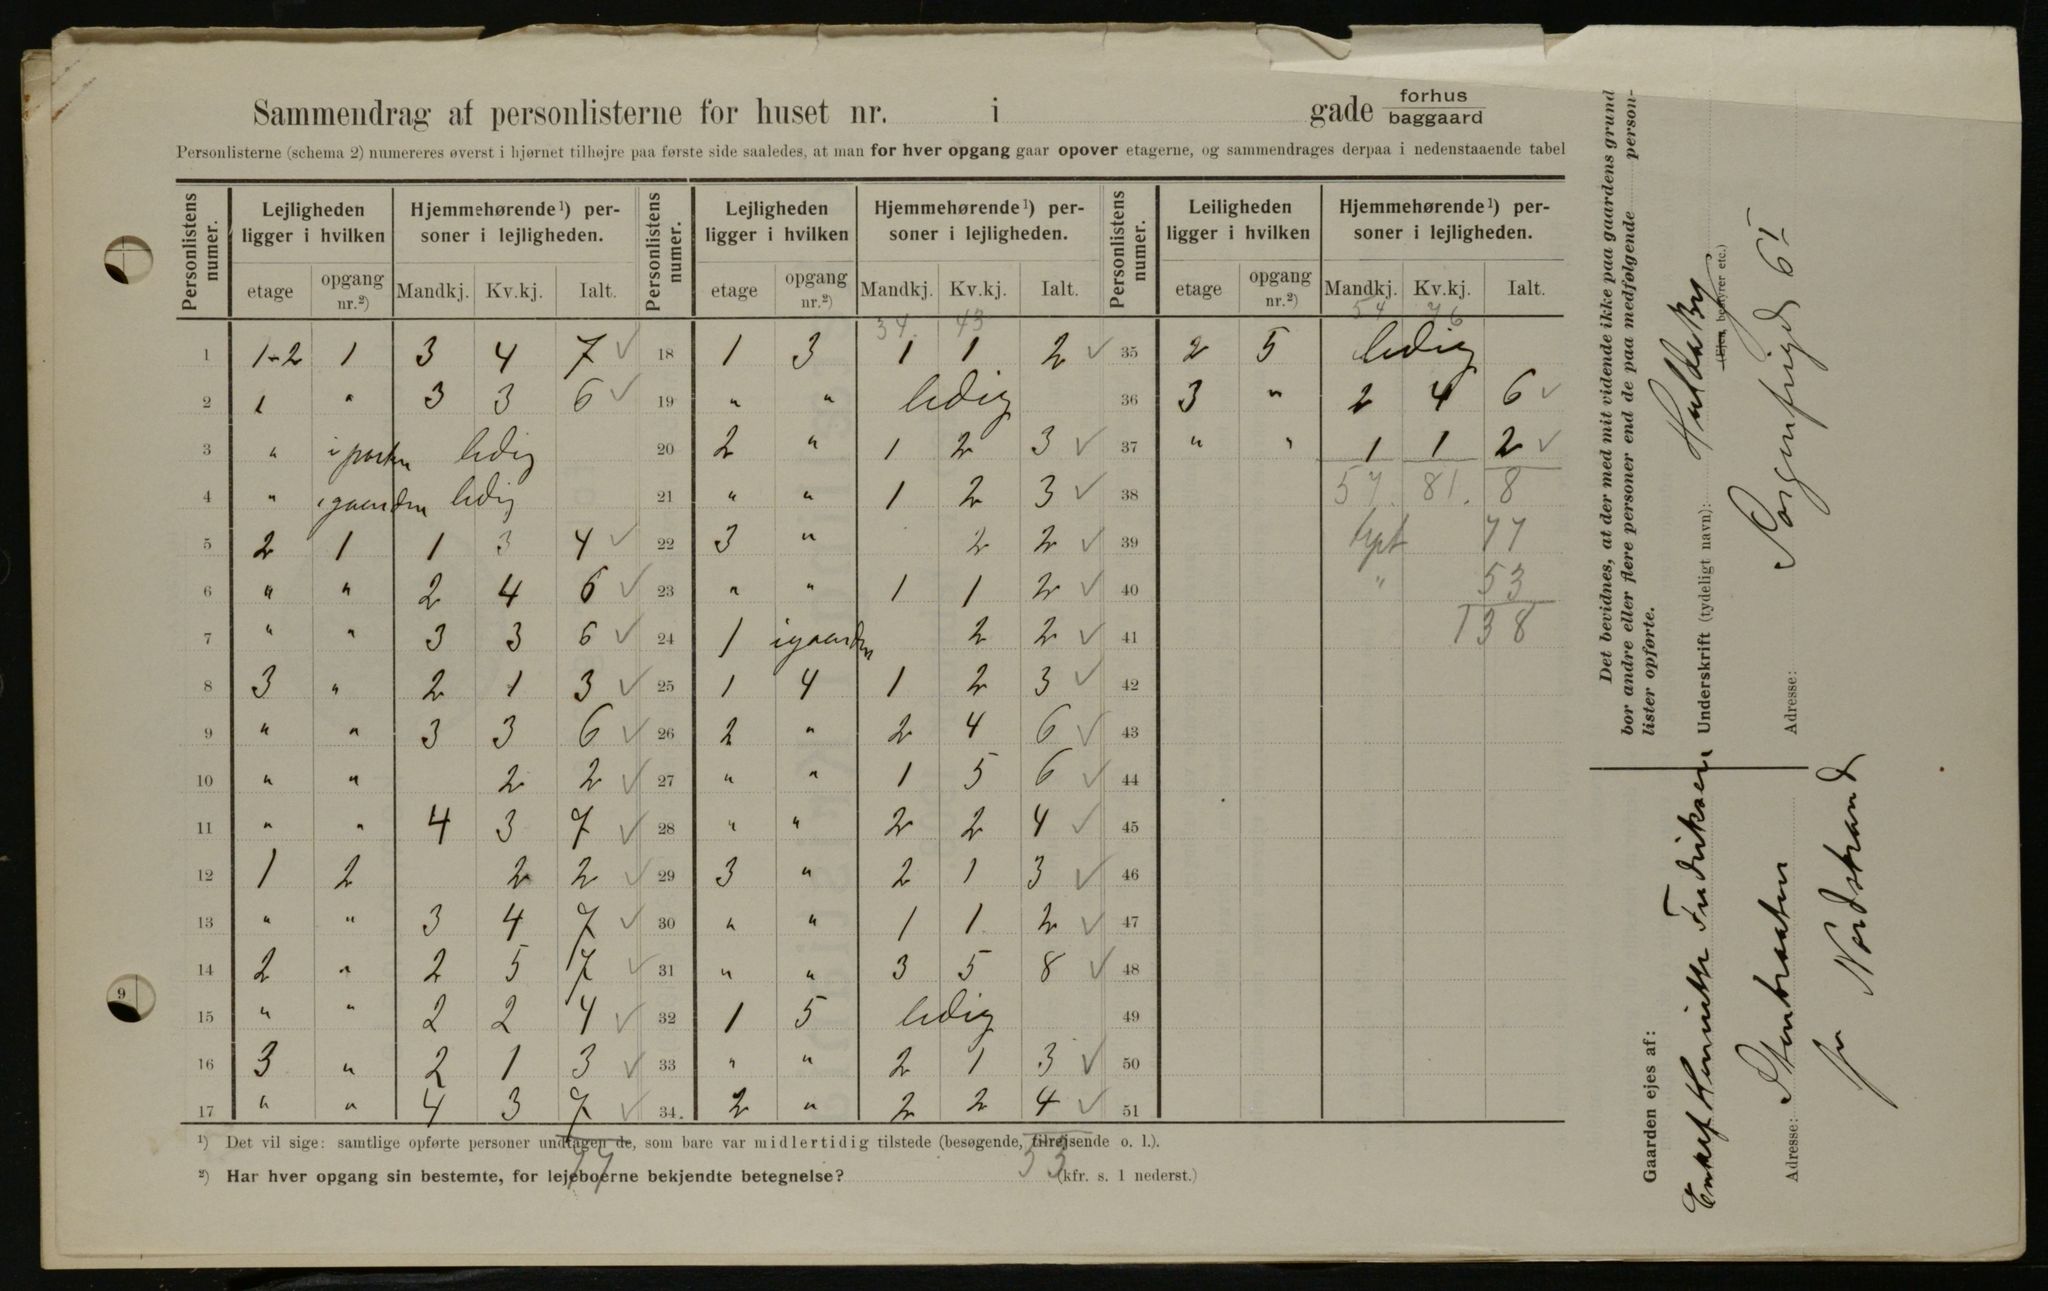 Sammendrag af personlisterne for huset nr. i gade forhus baggaard
Personlisterne (schema 2) numereres øverst i hjørnet tilhøjre paa første side saaledes, at man for hver opgang gaar opover etagerne, og sammendrages derpaa i nedenstaaende tabel
Personlistens numer. Lejligheden ligger i hvilken Hjemmehørende¹) personer i lejligheden. Personlistens numer. Lejligheden ligger i hvilken Hjemmehørende¹) personer i lejligheden. Personlistens numer. Leiligheden ligger i hvilken Hjemmehørende¹) personer i lejligheden.
etage opgang nr.²) Mandkj. Kv.kj. Ialt. etage opgang nr.²) Mandkj. Kv.kj. Ialt. etage opgang nr.²) Mandkj. Kv.kj. Ialt.
34. 43 54 76
1 1-2 1 3 4 7 ✓ 18 1 3 1 1 2 ✓ 35 2 5 ledig
2 1 " 3 3 6 ✓ 19 " " ledig 36 3 " 2 4 6 ✓
3 " i porten ledig 20 2 " 1 2 3 ✓ 37 " " 1 1 2 ✓
4 " i gaarden ledig 21 " " 1 2 3 ✓ 38 57. 81. 8
5 2 1 1 3 4 ✓ 22 3 " 2 2 ✓ 39 trpt 77
6 " " 2 4 6 ✓ 23 " " 1 1 2 ✓ 40 " 53
7 " " 3 3 6 ✓ 24 1 i gaarden 2 2 ✓ 41 138
8 3 " 2 1 3 ✓ 25 1 4 1 2 3 ✓ 42
9 " " 3 3 6 ✓ 26 2 " 2 4 6 ✓ 43
10 " " 2 2 ✓ 27 " " 1 5 6 ✓ 44
11 " " 4 3 7 ✓ 28 " " 2 2 4 ✓ 45
12 1 2 2 2 ✓ 29 3 " 2 1 3 ✓ 46
13 " " 3 4 7 ✓ 30 " " 1 1 2 ✓ 47
14 2 " 2 5 7 ✓ 31 " " 3 5 8 ✓ 48
15 " " 2 2 4 ✓ 32 1 5 ledig 49
16 3 " 2 1 3 ✓ 33 " " 2 1 3 ✓ 50
17 " " 4 3 7 ✓ 34. 2 " 2 2 4 ✓ 51
¹) Det vil sige: samtlige opførte personer undtagen de, som bare var midlertidig tilstede (besøgende, tilrejsende o. l.).
77 53
²) Har hver opgang sin bestemte, for lejeboerne bekjendte betegnelse? (kfr. s. 1 nederst.)
9
Det bevidnes, at der med mit vidende ikke paa gaardens grund
bor andre eller flere personer end de paa medfølgende personlister opførte.
Underskrift (tydeligt navn): Huldaby
(Ejer, bestyrer etc.)
Adresse: Sorgenfrigd 6 I
Gaarden ejes af:
Enkef Henriette Fredriksen
Adresse: Stenbraaten
pr Nordstrand